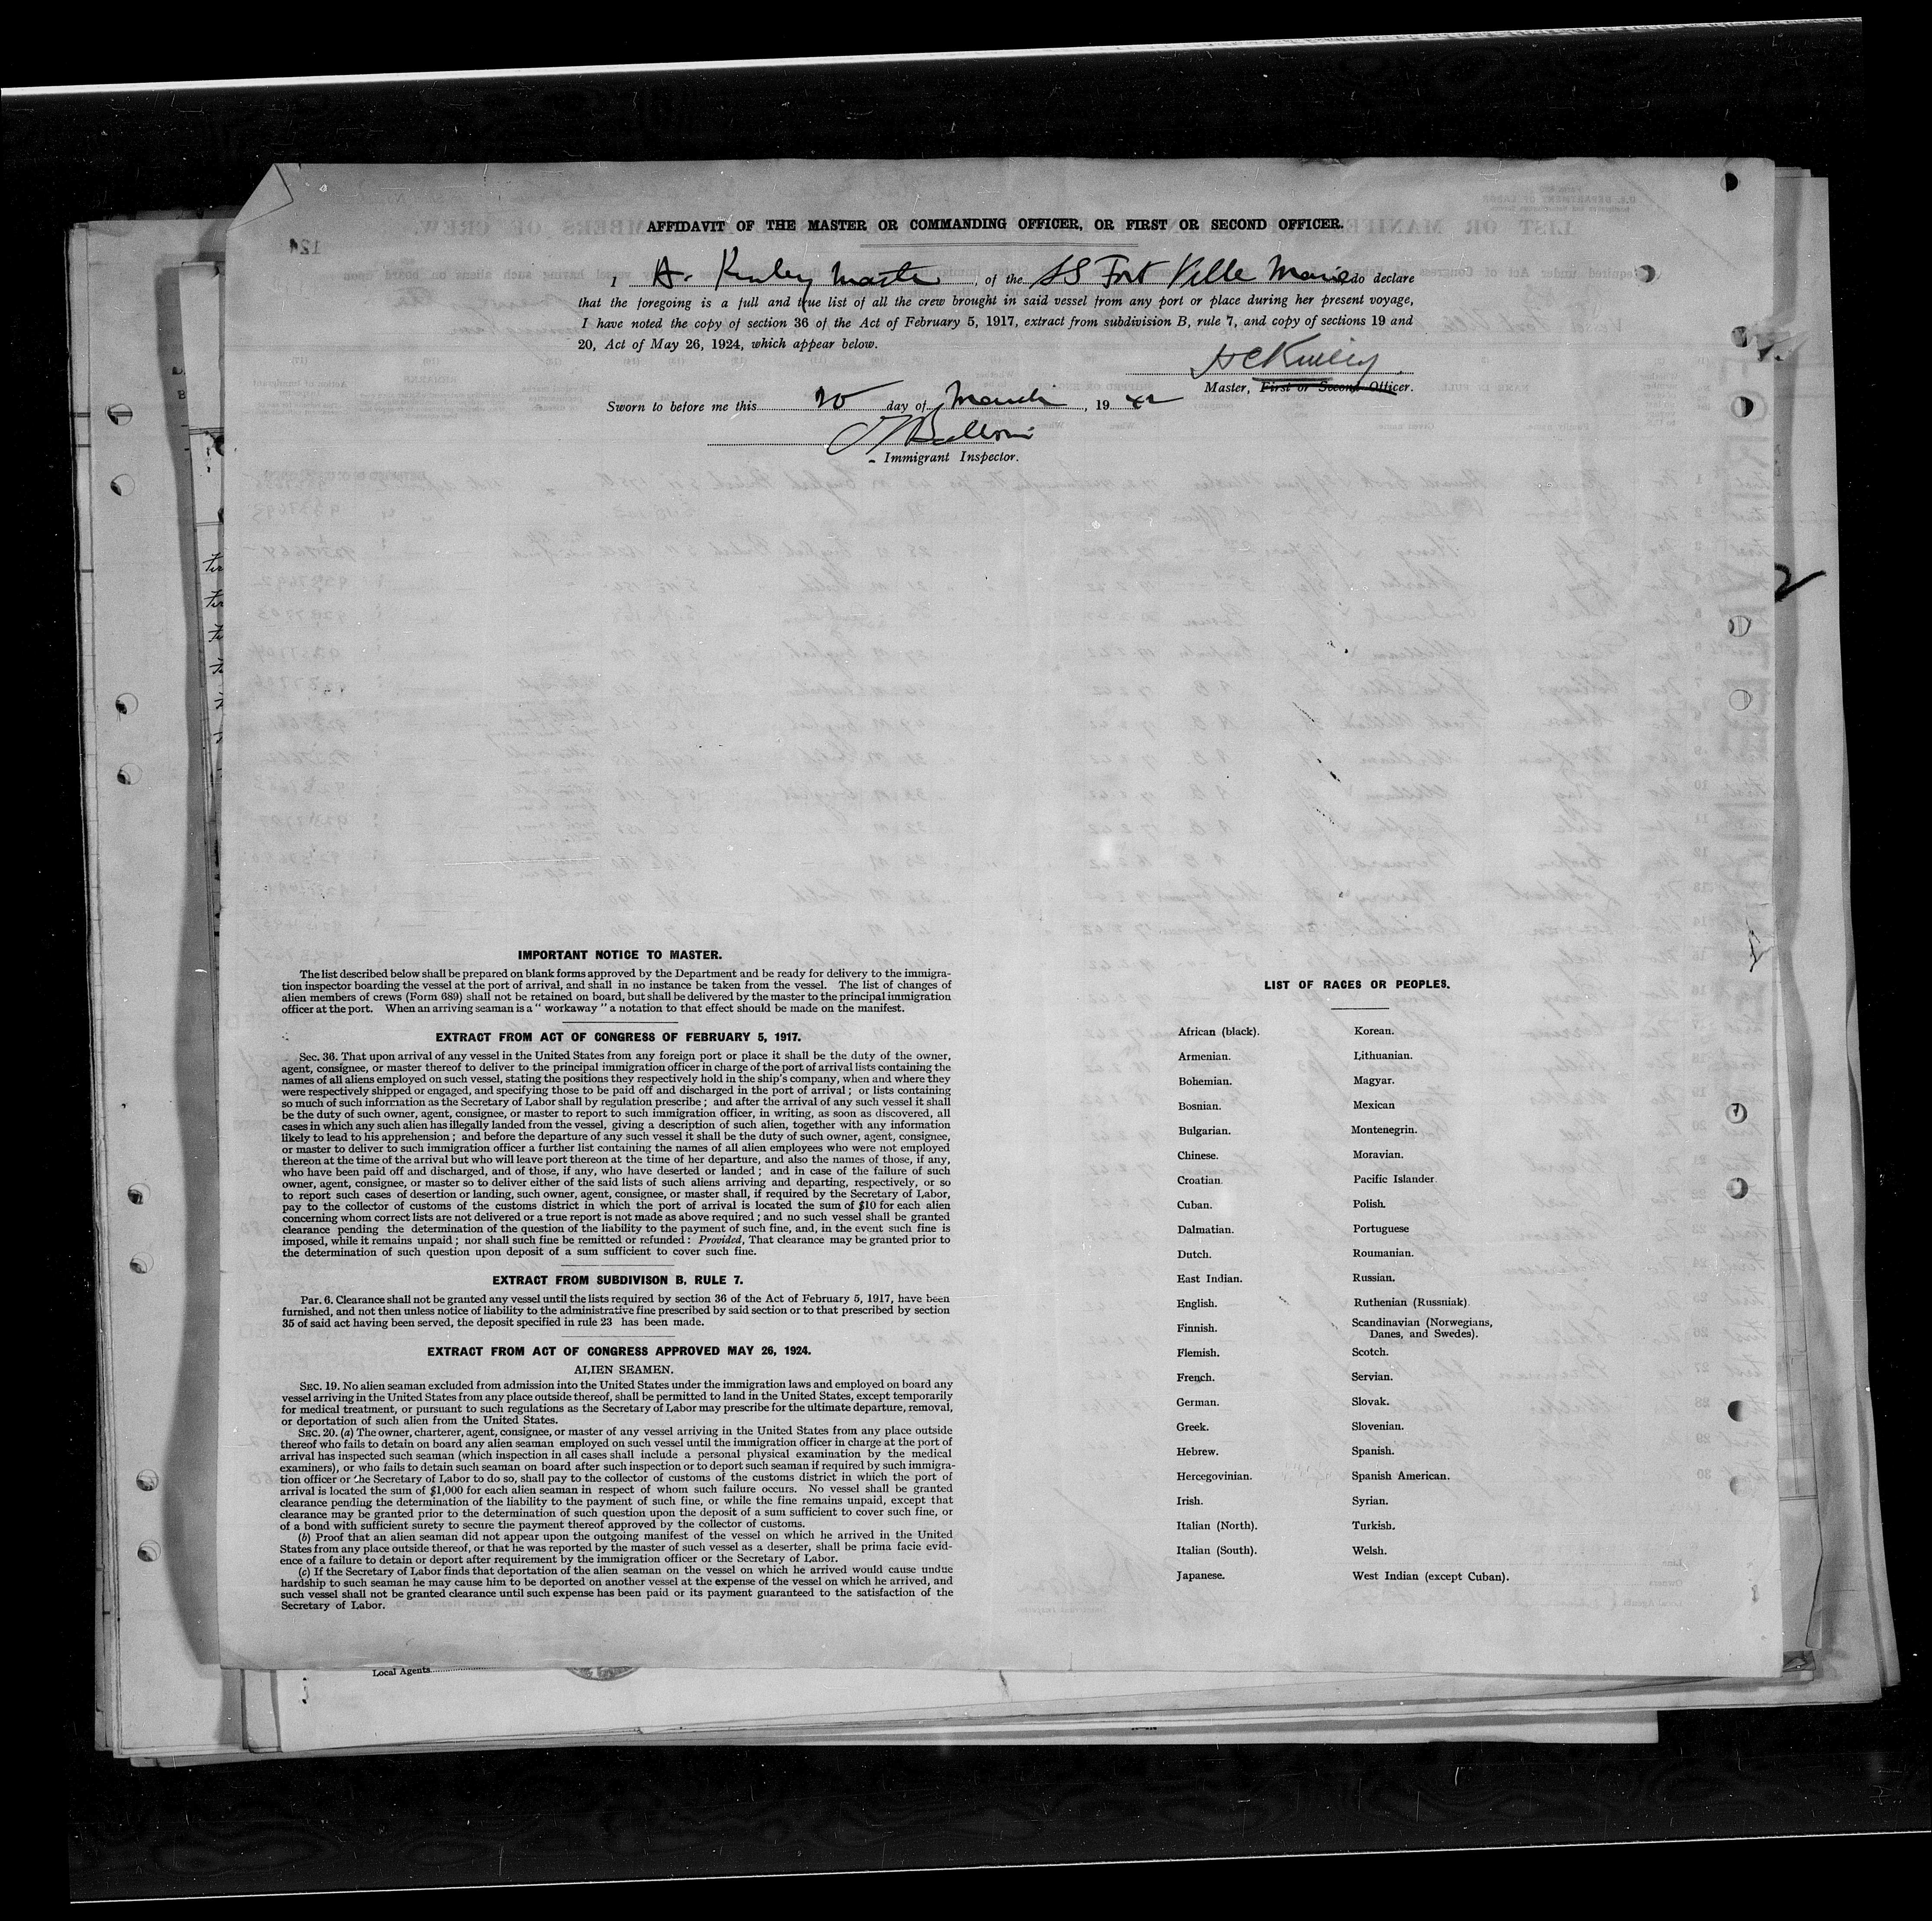 AFFIDAVIT OF THE MASTER OR COMMANDING OFFICER, OR FIRST OR SECOND OFFICER.
124
I A. Master, of the SS Fort Ville Marie do declare
that the foregoing is a full and true list of all the crew brought in said vessel from any port or place during her present voyage,
I have noted the copy of section 36 of the Act of February 5, 1917, extract from subdivision B, rule 7, and copy of sections 19 and
20, Act of May 26, 1924, which appear below.
Master, First or Second Officer.
Sworn to before me this 20 day of March, 19 42
Immigrant Inspector.
IMPORTANT NOTICE TO MASTER.
The list described below shall be prepared on blank forms approved by the Department and be ready for delivery to the immigra-
tion inspector boarding the vessel at the port of arrival, and shall in no instance be taken from the vessel. The list of changes of
alien members of crews (Form 689) shall not be retained on board, but shall be delivered by the master to the principal immigration
officer at the port. When an arriving seaman is a " workaway " a notation to that effect should be made on the manifest.
EXTRACT FROM ACT OF CONGRESS OF FEBRUARY 5, 1917.
Sec. 36. That upon arrival of any vessel in the United States from any foreign port or place it shall be the duty of the owner,
agent, consignee, or master thereof to deliver to the principal immigration officer in charge of the port of arrival lists containing the
names of all aliens employed on such vessel, stating the positions they respectively hold in the ship's company, when and where they
were respectively shipped or engaged, and specifying those to be paid off and discharged in the port of arrival ; or lists containing
so much of such information as the Secretary of Labor shall by regulation prescribe ; and after the arrival of any such vessel it shall
be the duty of such owner, agent, consignee, or master to report to such immigration officer, in writing, as soon as discovered, all
cases in which any such alien has illegally landed from the vessel, giving a description of such alien, together with any information
likely to lead to his apprehension ; and before the departure of any such vessel it shall be the duty of such owner, agent, consignee,
or master to deliver to such immigration officer a further list containing the names of all alien employees who were not employed
thereon at the time of the arrival but who will leave port thereon at the time of her departure, and also the names of those, if any,
who have been paid off and discharged, and of those, if any, who have deserted or landed ; and in case of the failure of such
owner, agent, consignee, or master so to deliver either of the said lists of such aliens arriving and departing, respectively, or so
to report such cases of desertion or landing, such owner, agent, consignee, or master shall, if required by the Secretary of Labor,
pay to the collector of customs of the customs district in which the port of arrival is located the sum of $10 for each alien
concerning whom correct lists are not delivered or a true report is not made as above required ; and no such vessel shall be granted
clearance pending the determination of the question of the liability to the payment of such fine, and, in the event such fine is
imposed, while it remains unpaid ; nor shall such fine be remitted or refunded : Provided, That clearance may be granted prior to
the determination of such question upon deposit of a sum sufficient to cover such fine.
EXTRACT FROM SUBDIVISON B, RULE 7.
Par. 6. Clearance shall not be granted any vessel until the lists required by section 36 of the Act of February 5, 1917, have been
furnished, and not then unless notice of liability to the administrative fine prescribed by said section or to that prescribed by section
35 of said act having been served, the deposit specified in rule 23 has been made.
EXTRACT FROM ACT OF CONGRESS APPROVED MAY 26, 1924.
ALIEN SEAMEN.
SEC. 19. No alien seaman excluded from admission into the United States under the immigration laws and employed on board any
vessel arriving in the United States from any place outside thereof, shall be permitted to land in the United States, except temporarily
for medical treatment, or pursuant to such regulations as the Secretary of Labor may prescribe for the ultimate departure, removal,
or deportation of such alien from the United States.
SEC. 20. (a) The owner, charterer, agent, consignee, or master of any vessel arriving in the United States from any place outside
thereof who fails to detain on board any alien seaman employed on such vessel until the immigration officer in charge at the port of
arrival has inspected such seaman (which inspection in all cases shall include a personal physical examination by the medical
examiners), or who fails to detain such seaman on board after such inspection or to deport such seaman if required by such immigra-
tion officer or the Secretary of Labor to do so, shall pay to the collector of customs of the customs district in which the port of
arrival is located the sum of $1,000 for each alien seaman in respect of whom such failure occurs. No vessel shall be granted
clearance pending the determination of the liability to the payment of such fine, or while the fine remains unpaid, except that
clearance may be granted prior to the determination of such question upon the deposit of a sum sufficient to cover such fine, or
of a bond with sufficient surety to secure the payment thereof approved by the collector of customs.
(b) Proof that an alien seaman did not appear upon the outgoing manifest of the vessel on which he arrived in the United
States from any place outside thereof, or that he was reported by the master of such vessel as a deserter, shall be prima facie evid-
ence of a failure to detain or deport after requirement by the immigration officer or the Secretary of Labor.
(c) If the Secretary of Labor finds that deportation of the alien seaman on the vessel on which he arrived would cause undue
hardship to such seaman he may cause him to be deported on another vessel at the expense of the vessel on which he arrived, and
such vessel shall not be granted clearance until such expense has been paid or its payment guaranteed to the satisfaction of the
Secretary of Labor.
LIST OF RACES OR PEOPLES.
African (black).
Armenian.
Bohemian.
Bosnian.
Bulgarian.
Chinese.
Croatian.
Cuban.
Dalmatian.
Dutch.
East Indian.
English.
Finnish.
Flemish.
French.
German.
Greek.
Hebrew.
Hercegovinian.
Irish.
Italian (North).
Italian (South).
Japanese.
Korean.
Lithuanian.
Magyar.
Mexican
Montenegrin.
Moravian.
Pacific Islander.
Polish.
Portuguese
Roumanian.
Russian.
Ruthenian (Russniak).
Scandinavian (Norwegians,
Danes, and Swedes).
Scotch.
Servian.
Slovak.
Slovenian.
Spanish.
Spanish American.
Syrian.
Turkish.
Welsh.
West Indian (except Cuban).
Local Agents